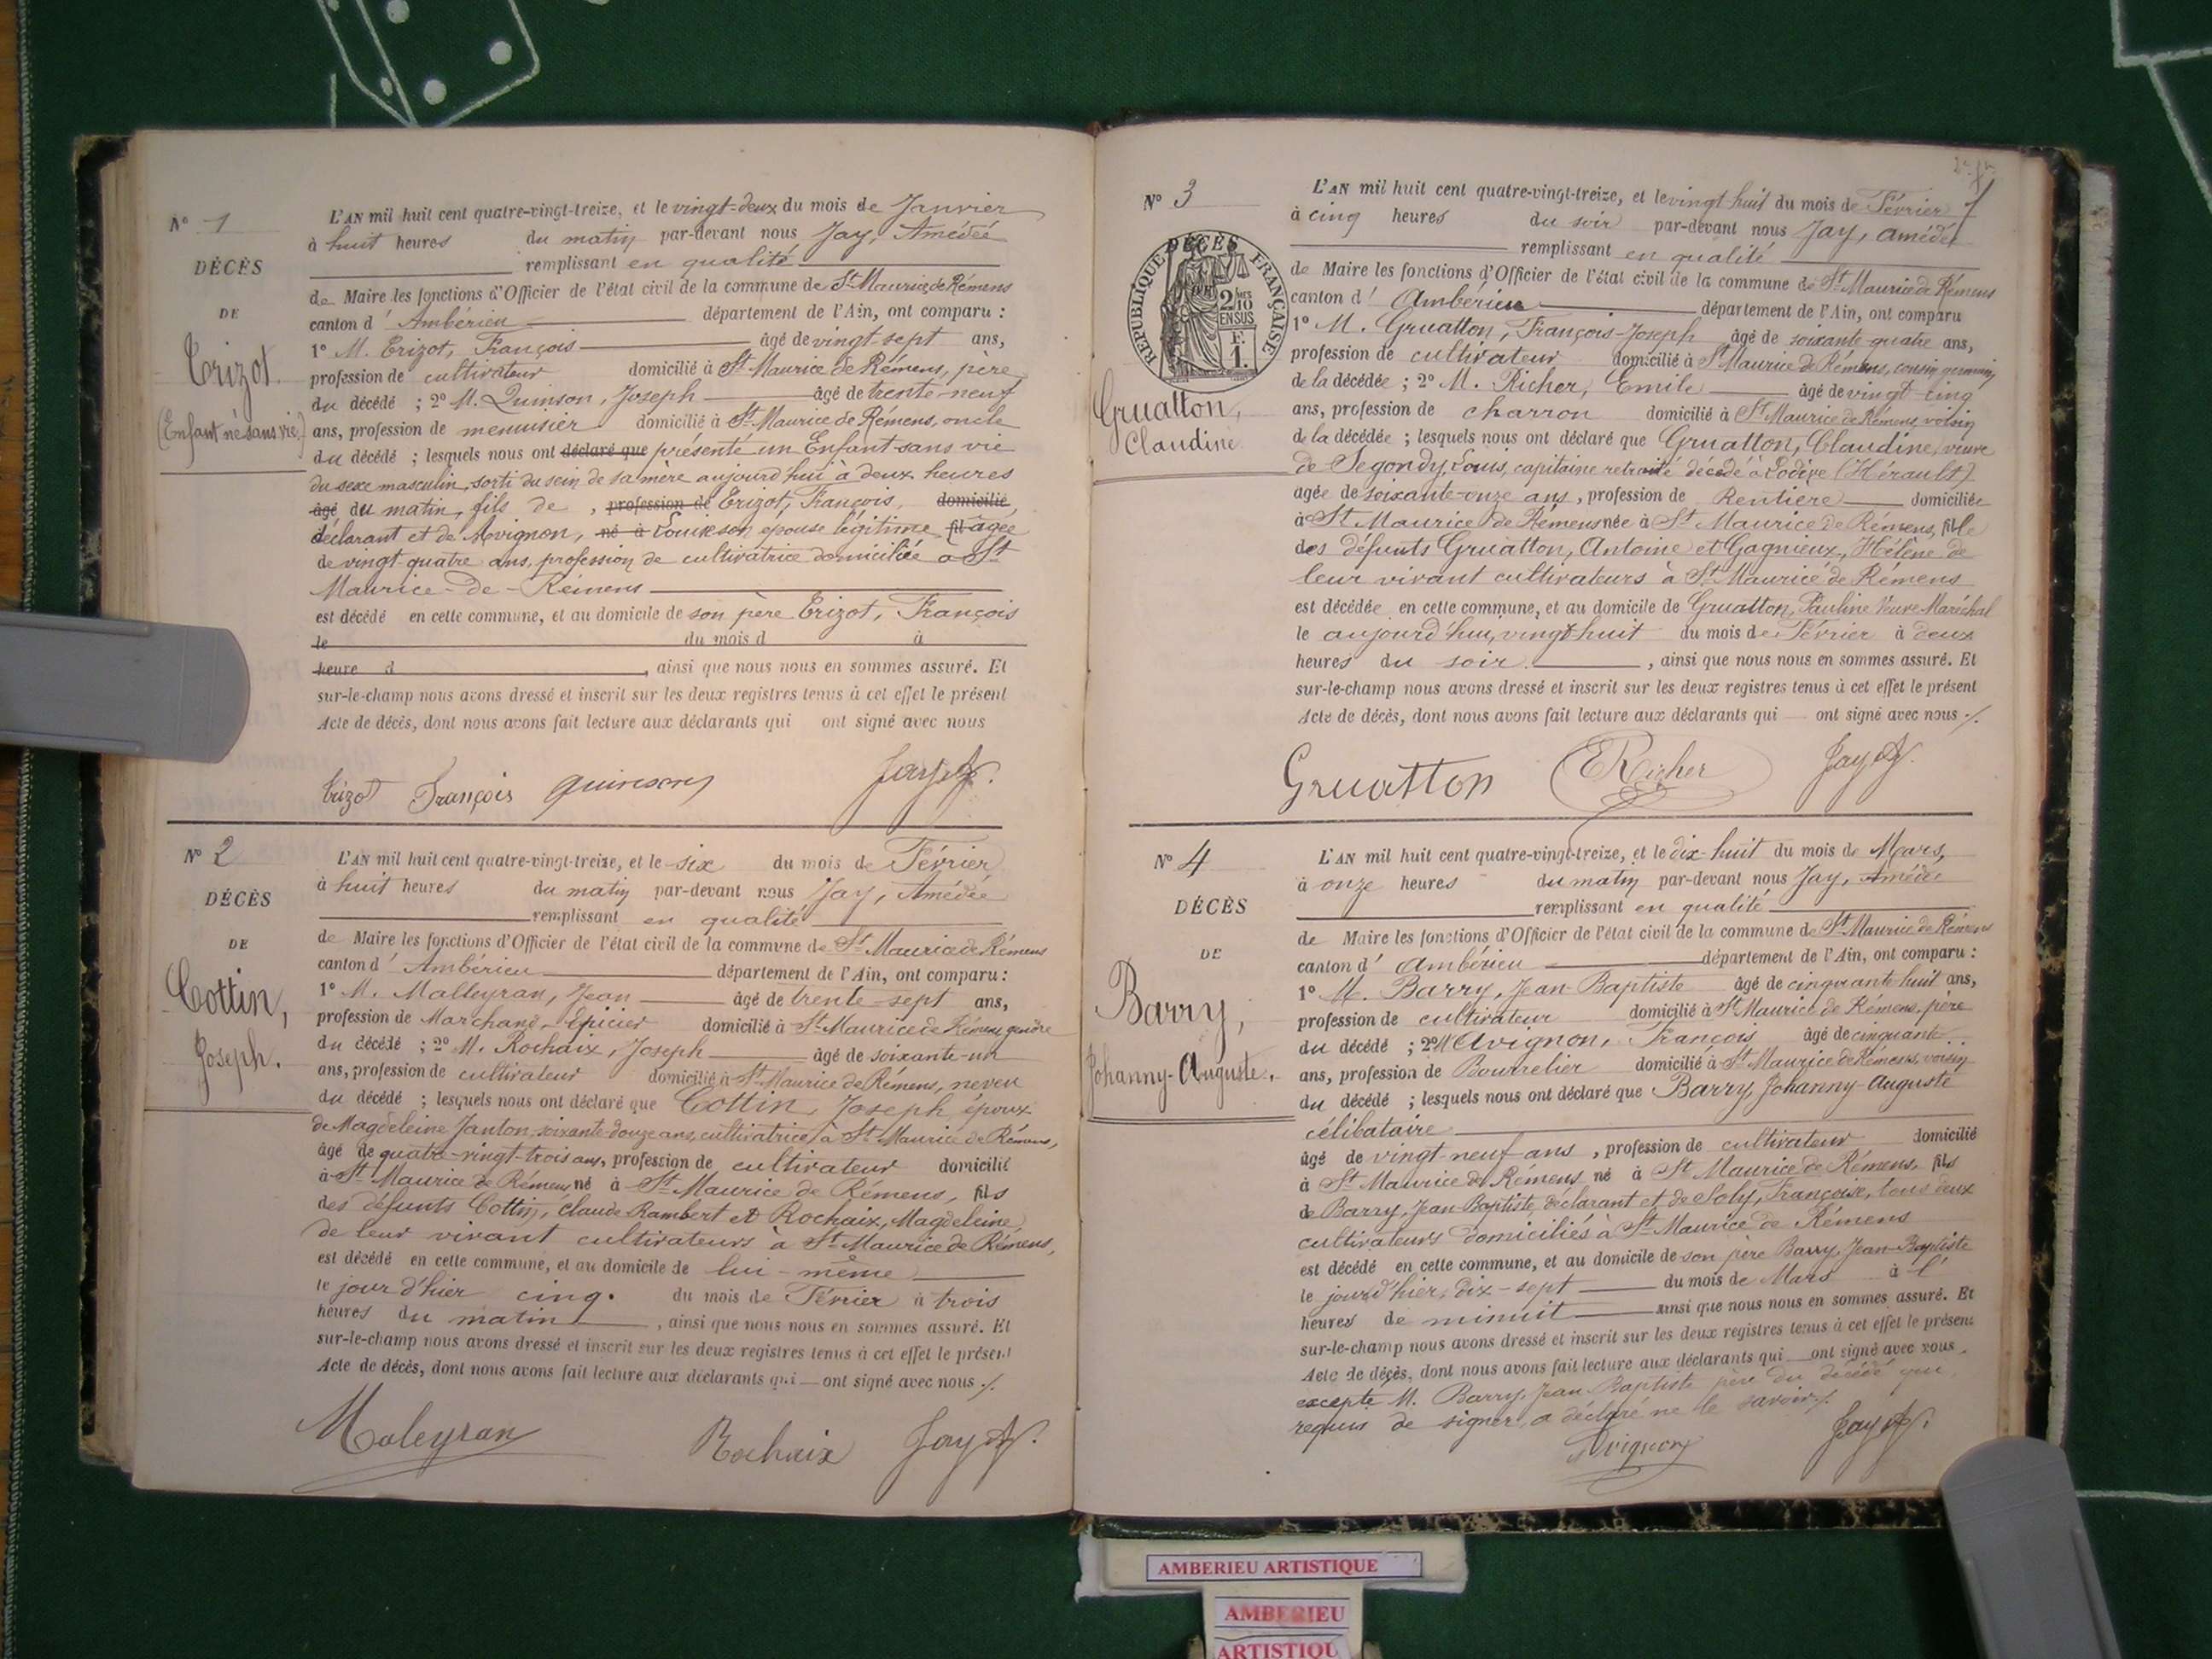 N° 1
DÉCÈS
DE
Erizot.
(Enfant né sans vie)
L'AN mil huit cent quatre-vingt-treize, et le vingt-deux du mois de Janvier
à huit heures du matin par-devant nous Jay, Amédée
remplissant en qualité
de Maire les fonctions d'Officier de l'état civil de la commune de St Maurice de Rémens
canton d' Ambérieu département de l'Ain, ont comparu :
1° M. Erizot, François âgé de vingt-sept ans,
profession de cultivateur domicilié à St Maurice de Rémens, père
du décédé ; 2° M. Quinson, Joseph âgé de trente-neuf
ans, profession de menuisier domicilié à St Maurice de Rémens, oncle
du décédé ; lesquels nous ont déclaré que présenté un Enfant sans vie
du sexe masculin, sorti du sein de sa mère aujourd'hui à deux heures
âgé du matin, fils de , profession de Erizot, François, domicilié,
déclarant et de Avignon, né à Louise son épouse légitime, fil âgée
de vingt-quatre ans, profession de cultivatrice domiciliée à St
Maurice-de-Rémens
est décédé en cette commune, et au domicile de son père Erizot, François
le du mois d à
heure d , ainsi que nous nous en sommes assuré. Et
sur-le-champ nous avons dressé et inscrit sur les deux registres tenus à cet effet le présent
Acte de décès, dont nous avons fait lecture aux déclarants qui ont signé avec nous
Erizot François Quinson Jay A.
N° 2
DÉCÈS
DE
Cottin,
Joseph.
L'AN mil huit cent quatre-vingt-treize, et le six du mois de Février
à huit heures du matin par-devant nous Jay, Amédée
remplissant en qualité
de Maire les fonctions d'Officier de l'état civil de la commune de St Maurice de Rémens
canton d' Ambérieu département de l'Ain, ont comparu :
1° M. Malleyran, Jean âgé de trente-sept ans,
profession de Marchand-Epicier domicilié à St Maurice de Rémens gendre
du décédé ; 2° M. Rochaix, Joseph âgé de soixante-un
ans, profession de cultivateur domicilié à St Maurice de Rémens, neveu
du décédé ; lesquels nous ont déclaré que Cottin, Joseph époux
de Magdeleine Janton, soixante-douze ans, cultivatrice à St Maurice de Rémens,
âgé de quatre-vingt-trois ans, profession de cultivateur domicilié
à St Maurice de Rémens né à St Maurice de Rémens, fils
des défunts Cottin, Claude Rambert et Rochaix, Magdeleine,
de leur vivant cultivateurs à St Maurice de Rémens,
est décédé en cette commune, et au domicile de lui-même
le jour d'hier cinq. du mois de Février à trois
heures du matin , ainsi que nous nous en sommes assuré. Et
sur-le-champ nous avons dressé et inscrit sur les deux registres tenus à cet effet le présent
Acte de décès, dont nous avons fait lecture aux déclarants qui ont signé avec nous ./.
Maleyran Rochaix Jay A.
N° 3
DÉCÈS
RÉPUBLIQUE FRANÇAISE
2 MES
10
EN SUS
F.
1.
Gruatton,
Claudine
L'AN mil huit cent quatre-vingt-treize, et le vingt-huit du mois de Février
à cinq heures du soir par-devant nous Jay, Amédée
remplissant en qualité
de Maire les fonctions d'Officier de l'état civil de la commune de St Maurice de Rémens
canton d' Ambérieu département de l'Ain, ont comparu
1° M. Gruatton, François-Joseph âgé de soixante-quatre ans,
profession de cultivateur domicilié à St Maurice de Rémens, cousin germain
de la décédée ; 2° M. Richer, Emile âgé de vingt cinq
ans, profession de charron domicilié à St Maurice de Rémens voisin
de la décédée ; lesquels nous ont déclaré que Gruatton, Claudine, veuve
de Segondy, Louis, capitaine retraité décédé à Lodève (Hérault)
agée de soixante-onze ans, profession de Rentière domiciliée
à St Maurice de Rémens née à St Maurice de Rémens, fille
des défunts Gruatton, Antoine et Gagnieux, Hélène de
leur vivant cultivateurs à St Maurice de Rémens
est décédée en cette commune, et au domicile de Gruatton, Pauline Veuve Maréchal
le aujourd'hui, vingt-huit du mois de Février à deux
heures du soir. , ainsi que nous nous en sommes assuré. Et
sur-le-champ nous avons dressé et inscrit sur les deux registres tenus à cet effet le présent
Acte de décès, dont nous avons fait lecture aux déclarants qui ont signé avec nous ./.
Gruatton E Richer Jay A.
N° 4
DÉCÈS
DE
Barry,
Johanny-Auguste.
L'AN mil huit cent quatre-vingt-treize, et le dix-huit du mois de Mars,
à onze heures du matin par-devant nous Jay, Amédée
remplissant en qualité
de Maire les fonctions d'Officier de l'état civil de la commune de St Maurice de Rémens
canton d' Ambérieu département de l'Ain, ont comparu :
1° M. Barry, Jean-Baptiste âgé de cinquante-huit ans,
profession de cultivateur domicilié à St Maurice de Rémens, père
du décédé ; 2° M Avignon, François âgé de cinquante
ans, profession de Bourrelier domicilié à St Maurice de Rémens, voisin
du décédé ; lesquels nous ont déclaré que Barry, Johanny-Auguste
célibataire
âgé de vingt-neuf ans , profession de cultivateur domicilié
à St Maurice de Rémens né à St Maurice de Rémens, fils
de Barry, Jean-Baptiste, déclarant et de Soly, Françoise, tous deux
cultivateurs domiciliés à St Maurice de Rémens
est décédé en cette commune, et au domicile de son père Barry, Jean-Baptiste
le jour d'hier, dix-sept du mois de Mars à l'
heures de minuit ainsi que nous nous en sommes assuré. Et
sur-le-champ nous avons dressé et inscrit sur les deux registres tenus à cet effet le présent
Acte de décès, dont nous avons fait lecture aux déclarants qui ont signé avec nous
excepté M. Barry, Jean-Baptiste père du décédé qui
requis de signer, a déclaré ne le savoir./.
Avignon Jay A.
AMBERIEU ARTISTIQUE
AMBERIEU
ARTISTIQU